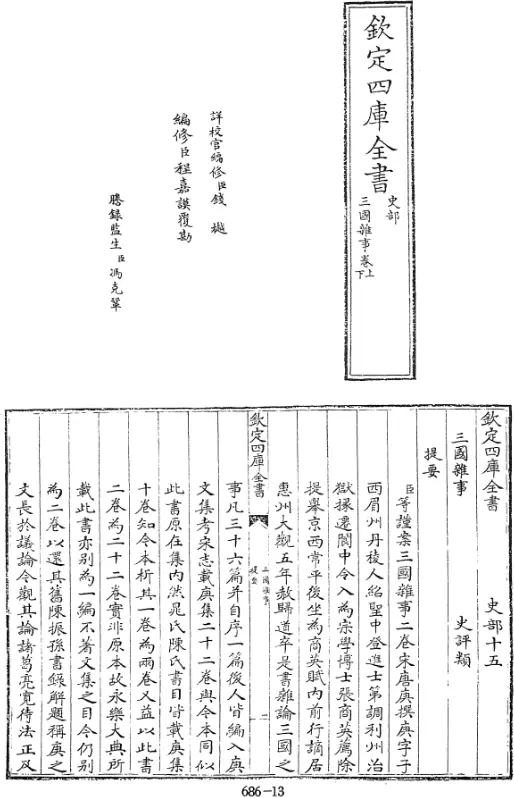 欽定四庫全書
史部
三國雜事卷上下
詳校官編修臣錢樾
編修臣程嘉謨覆勘
謄錄監生臣馮克鞏
欽定四庫全書 史部十五
三國雜事 史評類
提要
臣等謹案三國雜事二卷宋唐庚撰庚字子
西眉州丹稜人紹聖中登進士第調利州治
獄掾遷閬中令入為宗學博士張商英薦除
提舉京西常平後坐為商英賦內前行謫居
惠州大觀五年赦歸道卒是書雜論三國之
欽定四庫全書 三國雜事 提要 一
事凡三十六篇并自序一篇後人皆編入庚
文集考宋志載庚集二十二卷與今本同似
此書原在集內然晁氏陳氏書目皆載庚集
十卷知今本析其一卷為兩卷又益以此書
二卷為二十二卷實非原本故永樂大典所
載此書亦別為一編不著文集之目今仍別
為二卷以還其舊陳振孫書錄解題稱庚之
文長於議論今觀其論諸葛亮寬待法正及
686-13